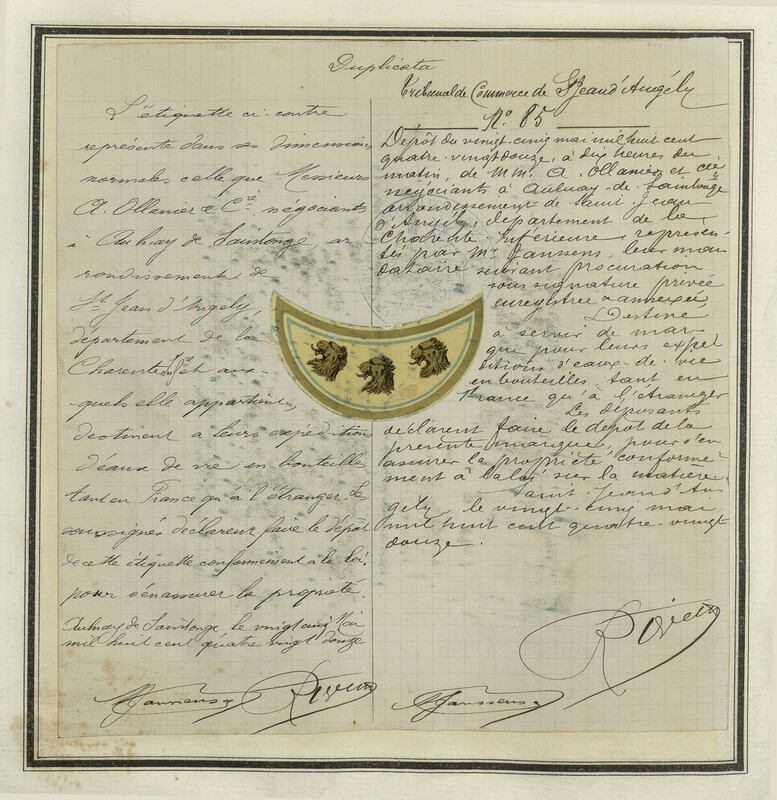 Duplicata
L'étiquette ci-contre
représente dans ses dimensions
normales celle que Messieurs
A. Ollanier & Cie, négociants
à Aulnay de Saintonge, ar
rondissement de
St Jean d'Angely,
département de la
Charente Infre et aux-
quels elle appartient,
destinent à leurs expéditions
d'eaux de vie en bouteille
tant en France qu'à l'étranger. Les
soussignés déclarent faire le dépôt
de cette étiquette conformement à la loi,
pour s'en assurer la propriété.
Aulnay de Saintonge le vingt cinq Mai
mil huit cent quatre vingt douze
Janssens
Tribunal de Commerce de St Jean d'Angély
No 85
Dépôt du vingt-cinq mai mil huit cent
quatre-vingt douze, à dix heures du
matin, de MM. A. Ollanier et Cie
négociants à Aulnay-de-Saintonge
arrondissement de Saint Jean
d'Angély, département de la
Charente Inférieure, représen-
tés par Mr Janssens, leur man
dataire suivant procuration
sous signature privée
enregistrée & annexée,
Destiné
à servir de mar-
que pour leurs expé
ditions d'eaux-de-vie
en bouteilles, tant en
France qu'à l'étranger
Les déposants
déclarent faire le dépôt de la
présente marque, pour s'en
assurer la propriété conformé-
ment à la loi sur la matière.
Saint Jean d'An
gély, le vingt-cinq mai
mil huit cent quatre-vingt
douze.
Janssens